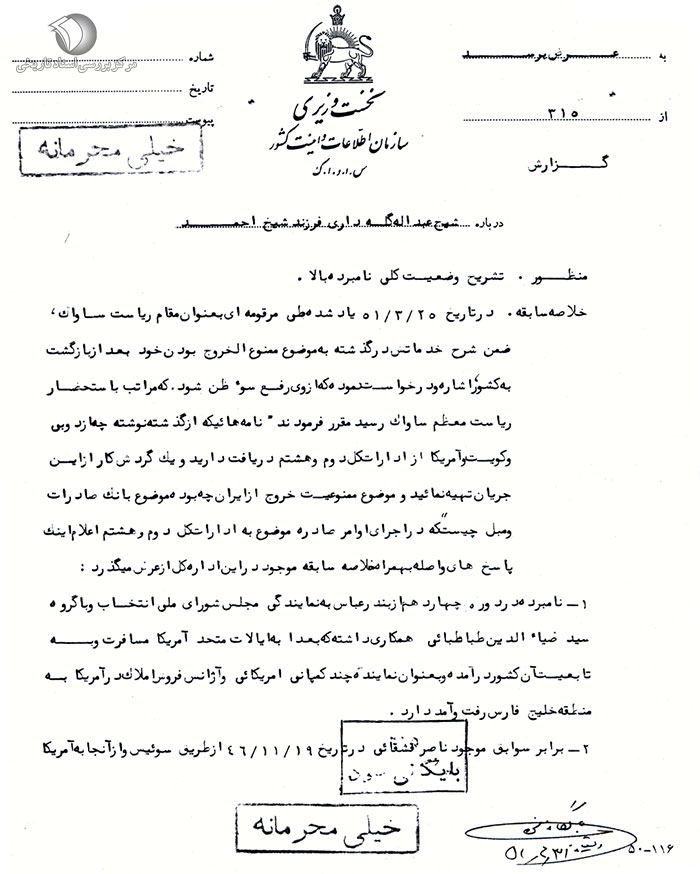 مرکز بررسی اسناد تاریخی
به عـرض برسـد
از ۳۱۵
شماره
تاریخ
پیوست
نخست وزیری
سازمان اطلاعات و امنیت کشور
س.ا.و.ا.ک
گـزارش
خیلی محرمانه
درباره شیخ عبداله گله داری فرزند شیخ احمـد
منظـور . تشریح وضعیت کلی نامبرده بالا .
خلاصه سابقه . در تاریخ ۵۱/۳/۲۵ یاد شده طی مرقومه ای بعنوان مقام ریاست ساواک ،
ضمن شرح خدماتش در گذشته به موضوع ممنوع الخروج بودن خود بعد از بازگشت
به کشور اشاره و درخواست نموده که از وی رفع سوء ظن شود . که مراتب با ستحضار
ریاست معظم ساواک رسید مقرر فرمودند " نامه هائیکه از گذشته نوشته چه از دوبی
و کویت و آمریکا از ادارات کل دوم و هشتم دریافت دارید و یک گردش کار از این
جریان تهیه نمائید و موضوع ممنوعیت خروج از ایران چه بوده موضوع بانک صادرات
و مبل چیست " که در اجرای اوامر صادره موضوع به ادارات کل دوم و هشتم اعلام اینک
پاسخ های واصله بهمراه خلاصه سابقه موجود در این اداره کل از عرض میگذرد :
۱ـ نامبرده در دوره چهاردهم از بندر عباس به نمایندگی مجلس شورای ملی انتخاب و با گروه
سید ضیاء الدین طباطبائی همکاری داشته که بعدا به ایالات متحد آمریکا مسافرت و بـه
تابعیت آن کشور درآمده و بعنوان نماینده چند کمپانی امریکائی و آژانس فروش املاک در آمریکا به
منطقه خلیج فارس رفت و آمد دارد .
۲ـ برابر سوابق موجود ناصر قشقائی در تاریخ ۴۶/۱۱/۱۹ از طریق سوئیس و از آنجا به آمریکا
بایگانی شود
خیلی محرمانه
۵۰-۱۱۶